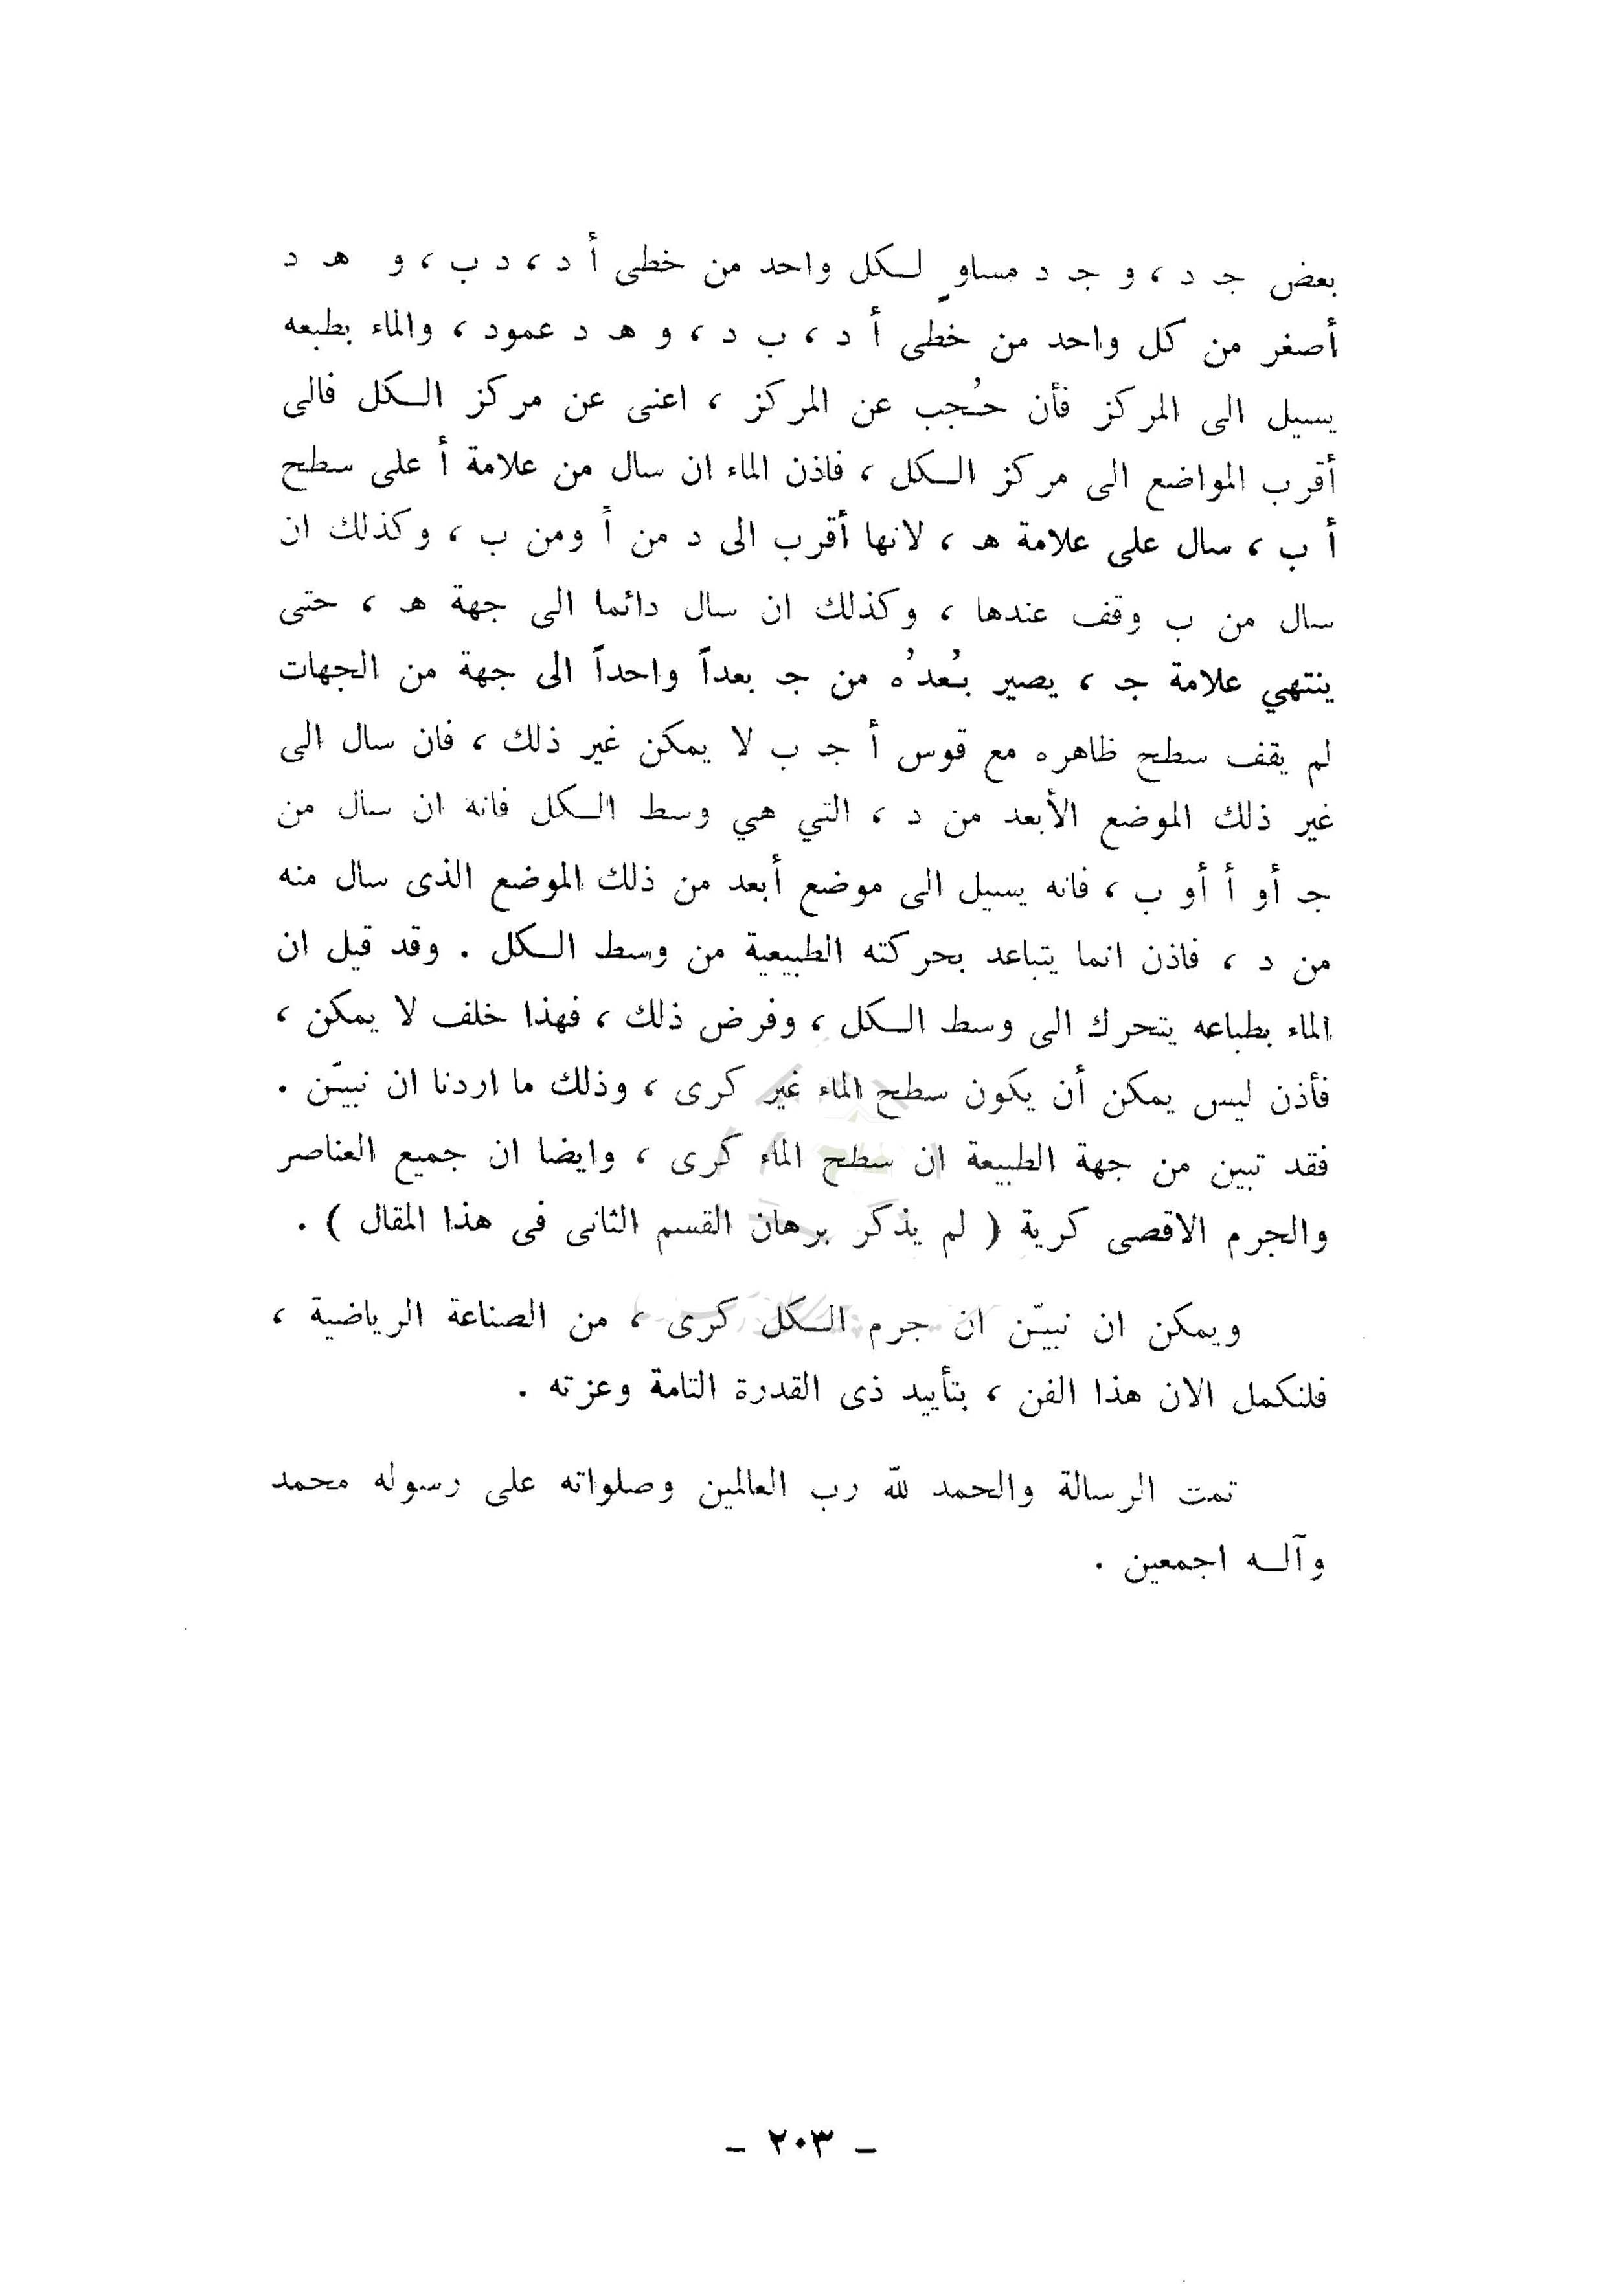 بعض جـ د ، و جـ د مساوٍ لـكل واحد من خطى أ د ، د ب ، و هـ د
أصغر من كل واحد من خطى أ د ، ب د ، و هـ د عمود ، والماء بطبعه
يسيل الى المركز فأن حُجب عن المركز ، اعنى عن مركز الـكل فالى
أقرب المواضع الى مركز الـكل ، فاذن الماء ان سال من علامة أ على سطح
أ ب ، سال على علامة هـ ، لانها أقرب الى د من أ ومن ب ، وكذلك ان
سال من ب وقف عندها ، وكذلك ان سال دائما الى جهة هـ ، حتى
ينتهي علامة جـ ، يصير بُعدُه من جـ بعداً واحداً الى جهة من الجهات
لم يقف سطح ظاهره مع قوس أ جـ ب لا يمكن غير ذلك ، فان سال الى
غير ذلك الموضع الأبعد من د ، التي هي وسط الـكل فانه ان سال من
جـ أو أ أو ب ، فانه يسيل الى موضع أبعد من ذلك الموضع الذى سال منه
من د ، فاذن انما يتباعد بحركته الطبيعية من وسط الـكل . وقد قيل ان
الماء بطباعه يتحرك الى وسط الـكل ، وفرض ذلك ، فهذا خلف لا يمكن ،
فأذن ليس يمكن أن يكون سطح الماء غير كرى ، وذلك ما اردنا ان نبيّن .
فقد تبين من جهة الطبيعة ان سطح الماء كرى ، وايضا ان جميع العناصر
والجرم الاقصى كرية ( لم يذكر برهان القسم الثانى فى هذا المقال ) .
ويمكن ان نبيّن ان جرم الـكل كرى ، من الصناعة الرياضية ،
فلنكمل الان هذا الفن ، بتأييد ذى القدرة التامة وعزته .
تمت الرسالة والحمد لله رب العالمين وصلواته على رسوله محمد
وآلـه اجمعين .
– ٢٠٣ –